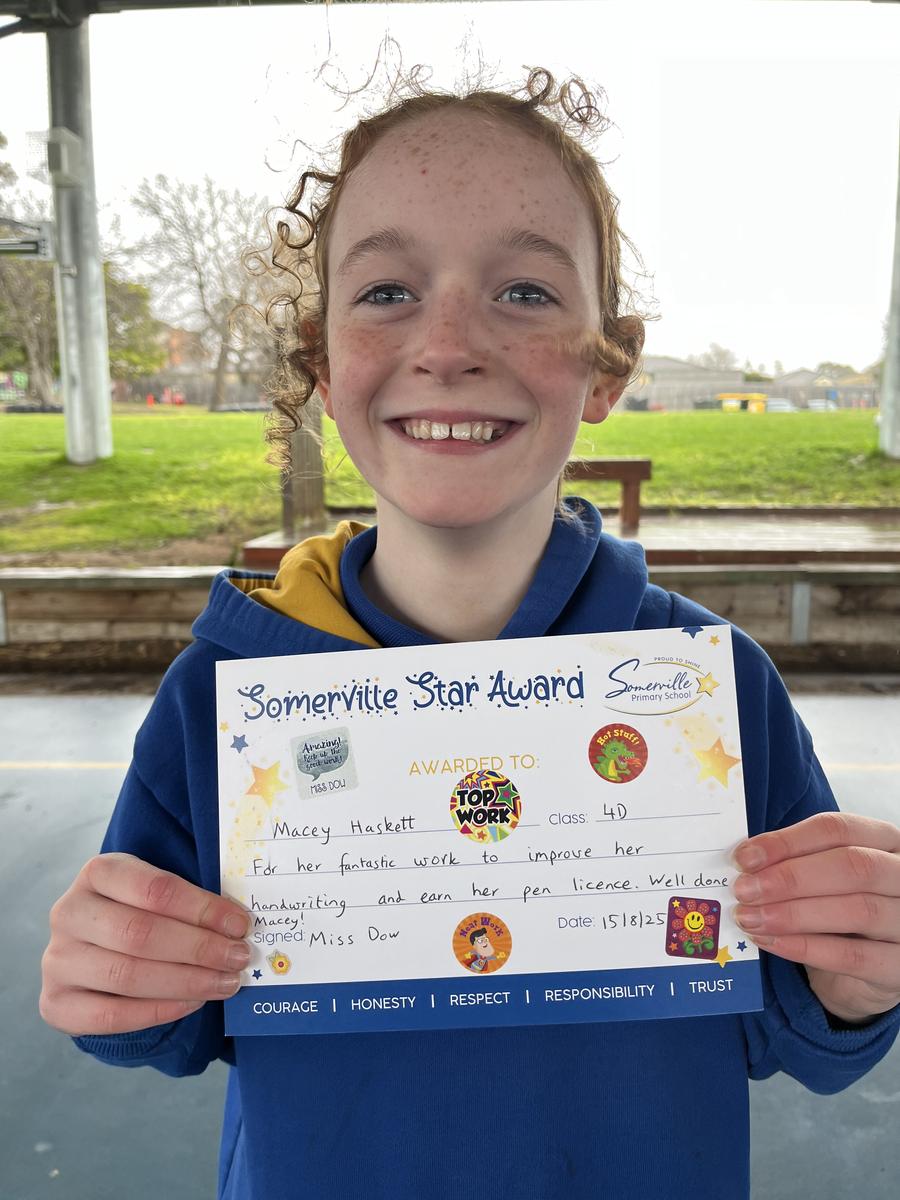 Somerville Star Award
PROUD TO SHINE
Somerville
Primary School
Amazing!
Keep up the
good work!
MISS DOW
Hot Stuff!
AWARDED TO:
TOP
WORK
Macey Haskett Class: 4D
For her fantastic work to improve her
handwriting and earn her pen licence. Well done
Macey!
Signed: Miss Dow
Neat Work
Date: 15/8/25
COURAGE | HONESTY | RESPECT | RESPONSIBILITY | TRUST